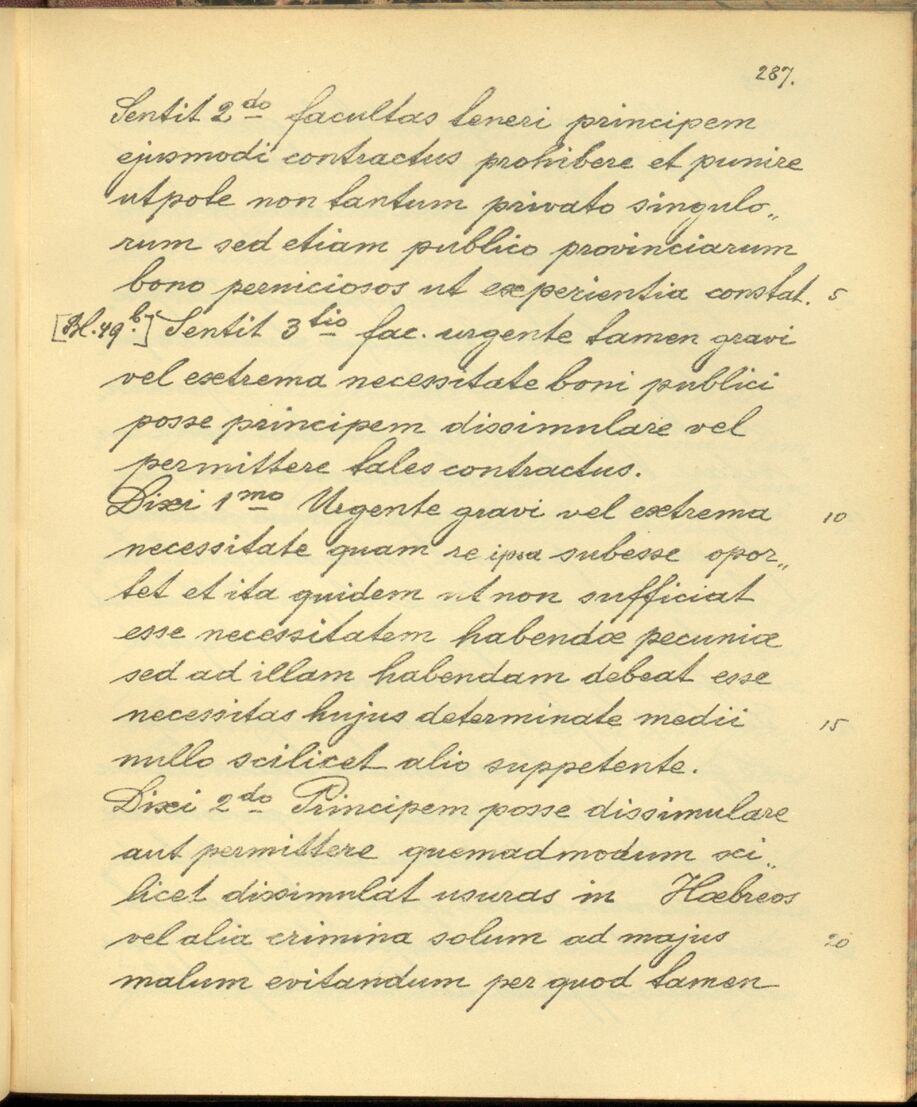 287.
Sentit 2do facultas teneri principem
ejusmodi contractus prohibere et punire
utpote non tantum privato singulo„
rum sed etiam publico provinciarum
bono perniciosos ut experientia constat. 5
[Bl. 49b.] Sentit 3tio fac. urgente tamen gravi
vel extrema necessitate boni publici
posse principem dissimulare vel
permittere tales contractus.
Dixi 1mo Urgente gravi vel extrema 10
necessitate quam re ipsa subesse opor„
tet et ita quidem ut non sufficiat
esse necessitatem habendæ pecuniæ
sed ad illam habendam debeat esse
necessitas hujus determinate medii 15
nullo scilicet alio suppetente.
Dixi 2do Principem posse dissimulare
aut permittere quemadmodum sci„
licet dissimulat usuras in Hæbreos
vel alia crimina solum ad majus 20
malum evitandum per quod tamen